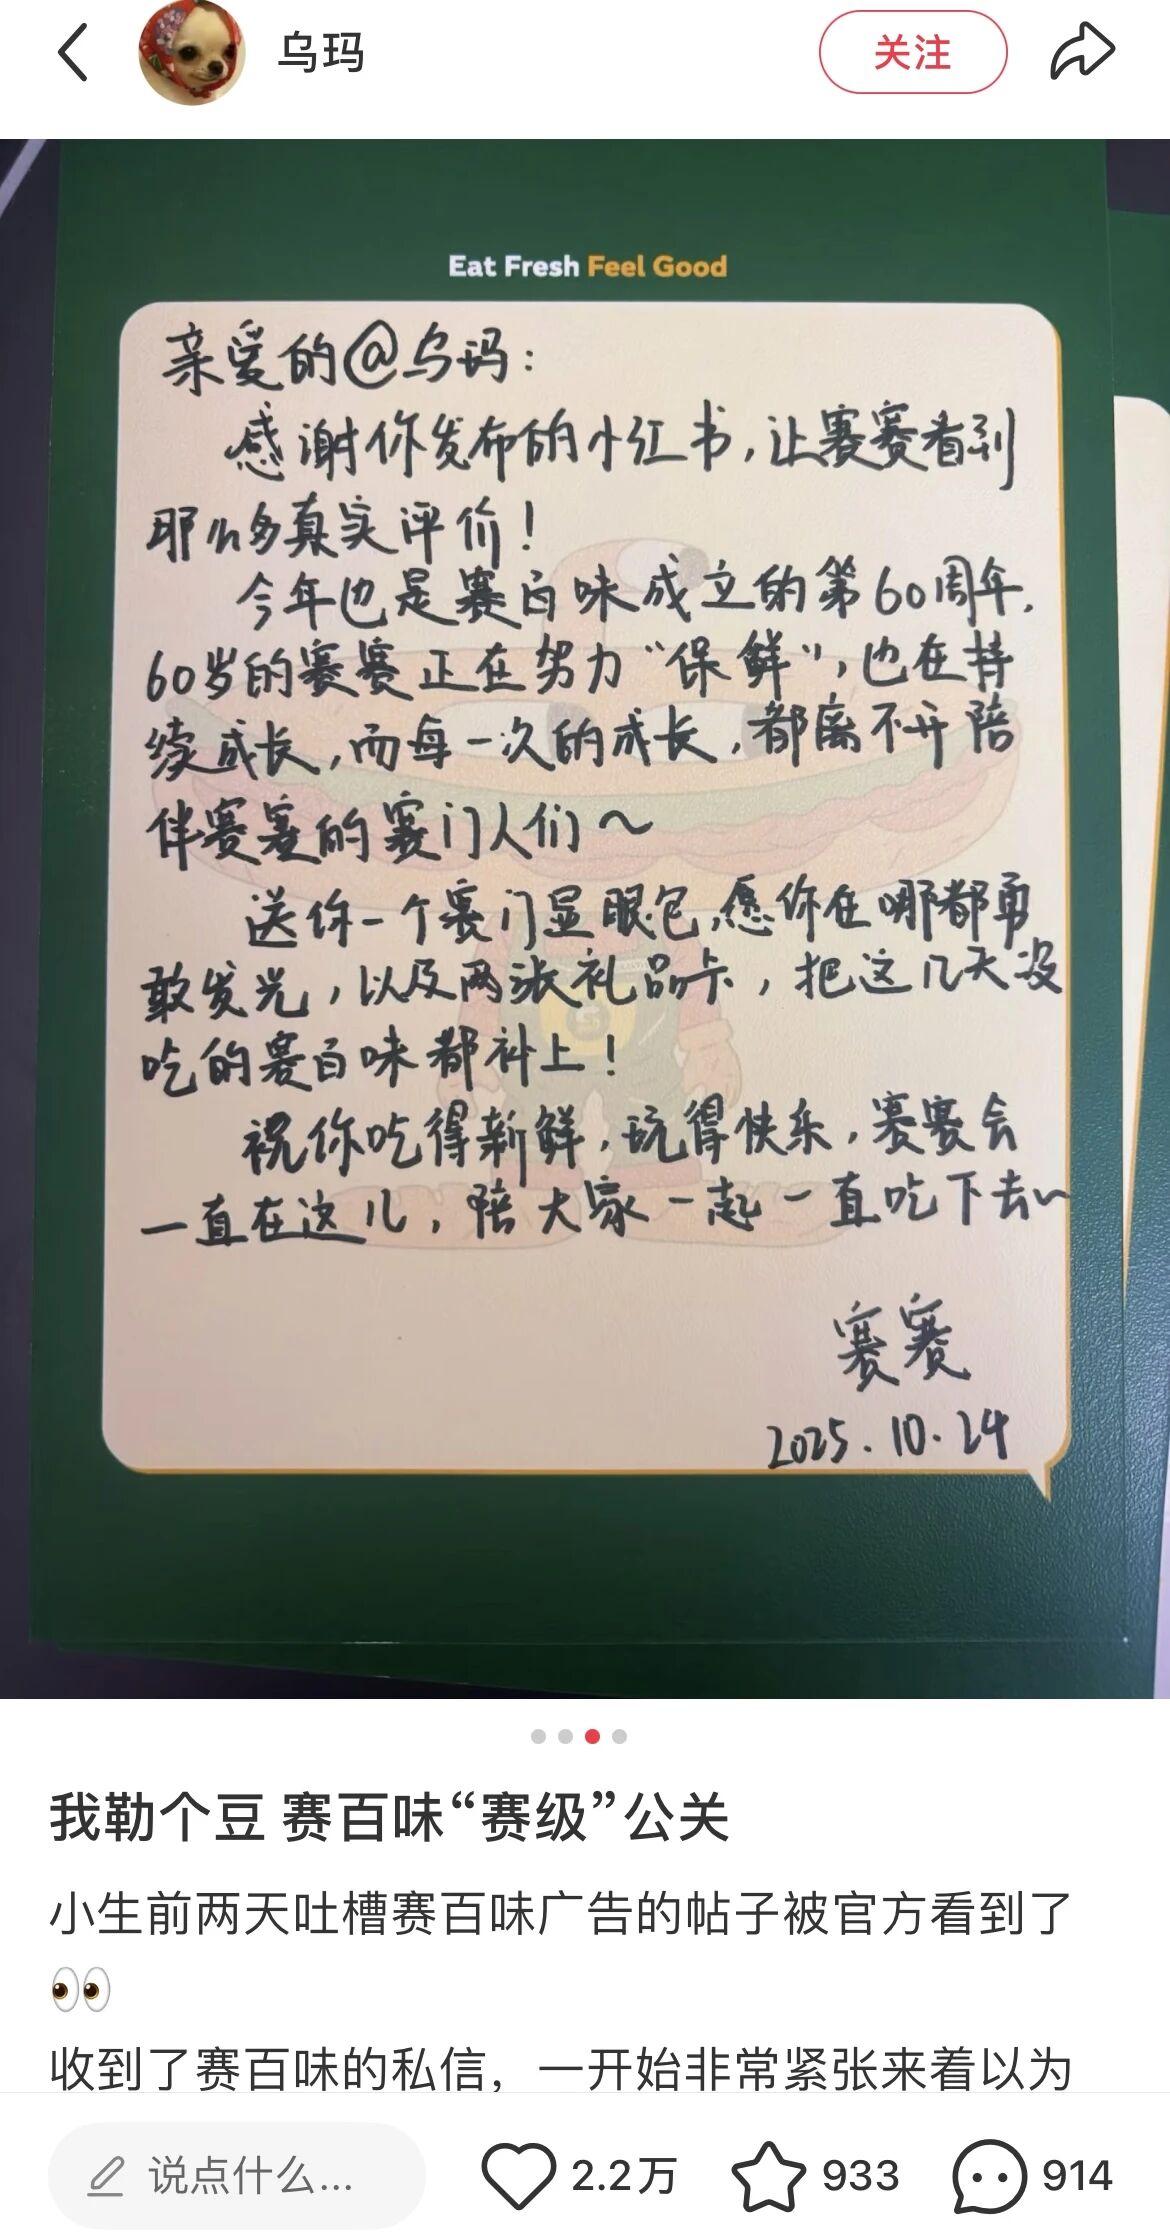 乌玛
关注
Eat Fresh Feel Good
亲爱的@乌玛：
感谢你发布的小红书，让赛赛看到
那么多真实评价！
今年也是赛百味成立的第60周年，
60岁的赛赛正在努力“保鲜”，也在持
续成长，而每一次的成长，都离不开陪
伴赛赛的赛门人们～
送你一个赛门显眼包，愿你在哪都勇
敢发光，以及两张礼品卡，把这几天没
吃的赛百味都补上！
祝你吃得新鲜，玩得快乐，赛赛会
一直在这儿，陪大家一起一直吃下去～
赛赛
2025.10.24
我勒个豆 赛百味“赛级”公关
小生前两天吐槽赛百味广告的帖子被官方看到了
👀
收到了赛百味的私信，一开始非常紧张来着以为
说点什么... 2.2万 933 914